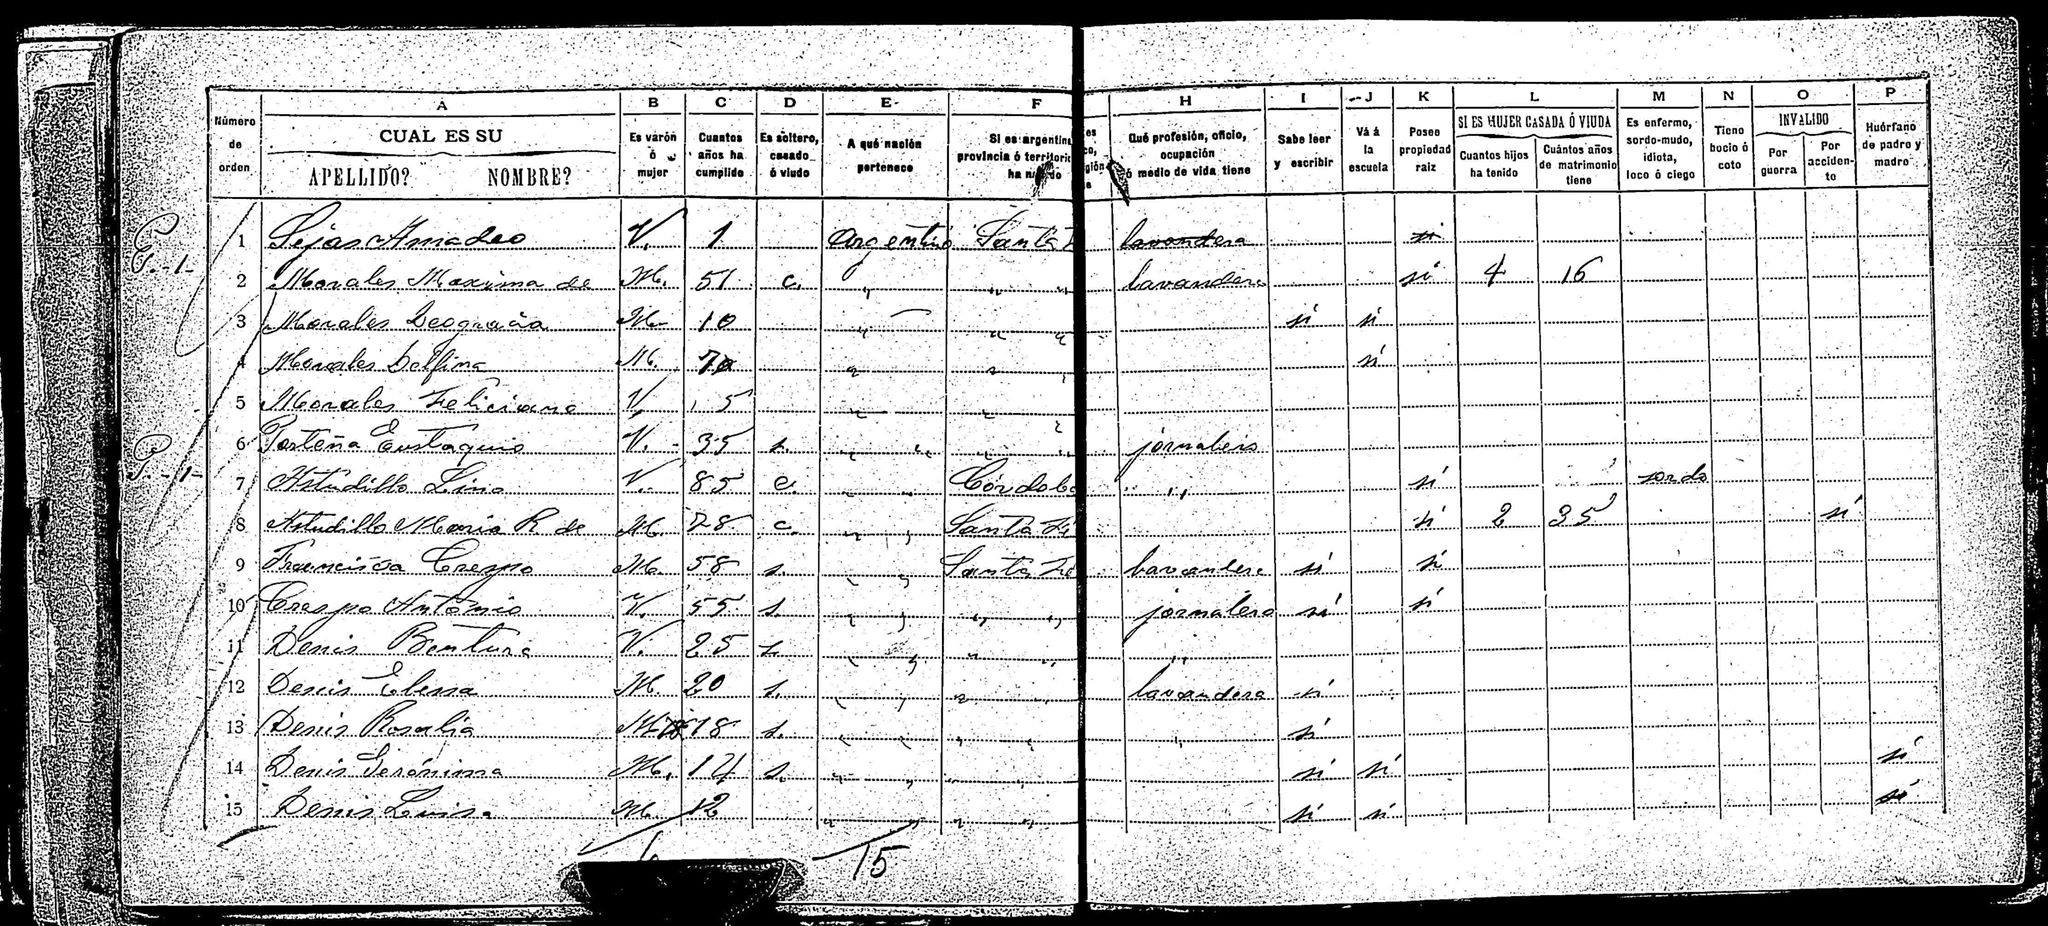 A B C D E F H I J K L M N O P
Número de orden CUAL ES SU APELLIDO? NOMBRE? Es varón ó mujer Cuantos años ha cumplido Es soltero, casado ó viudo A qué nación pertenece Si es argentino provincia ó territorio ha nacido Qué profesión, oficio, ocupación ó medio de vida tiene Sabe leer y escribir Vá á la escuela Posee propiedad raiz SI ES MUJER CASADA Ó VIUDA Cuantos hijos ha tenido Cuántos años de matrimonio tiene Es enfermo, sordo-mudo, idiota, loco ó ciego Tiene bocio ó coto INVALIDO Por guerra Por accidente Huérfano de padre y madre
1 Sejas Amadeo V. 1 Argentino Santa F lavandera si
E.-1-
2 Morales Maxima de M. 51 c. " " " lavandera si 4 16
3 Morales Deogracia M. 10 " " " si si
4 Morales Delfina M. 7 " " si
5 Morales Feliciano V. 5 " "
6 Porteña Eustaquio V. 35 s. " " " " jornalero
P.-1-
7 Astudillo Lino V. 85 c. " " Córdoba " " si sordo
8 Astudillo Maria R. de M. 78 c. " " Santa Fe si 2 35 si
9 Francisca Crespo M. 58 s. " " Santa Fe lavandera si si
10 Crespo Antonio V. 55 s. " " " " jornalero si si
11 Denis Bentura V. 25 s. " " " " "
12 Denis Elena M. 20 s. " " " lavandera si
13 Denis Rosalia M 18 s. " " " " " si
14 Denis Gerónima M. 14 s. " " " si si si
15 Denis Luisa M. 12 " " " " si si si
15